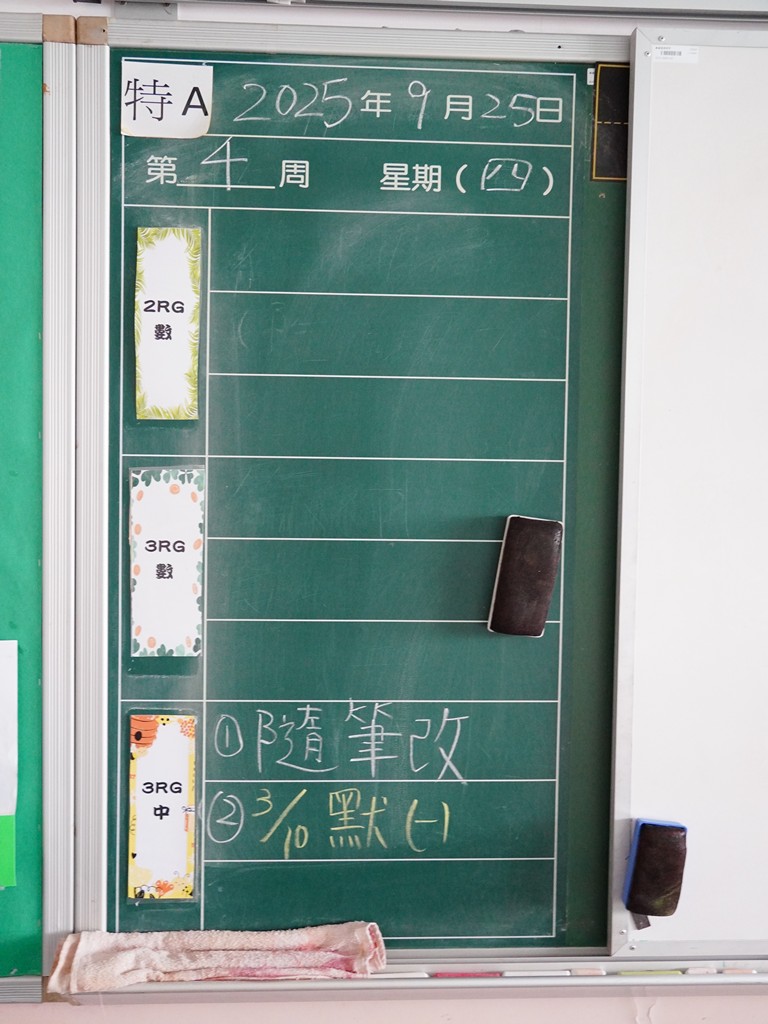 特A 2025年9月25日
第4周 星期(四)
2RG
數
3RG
數
3RG
中
①隨筆改
②3/10 默(一)